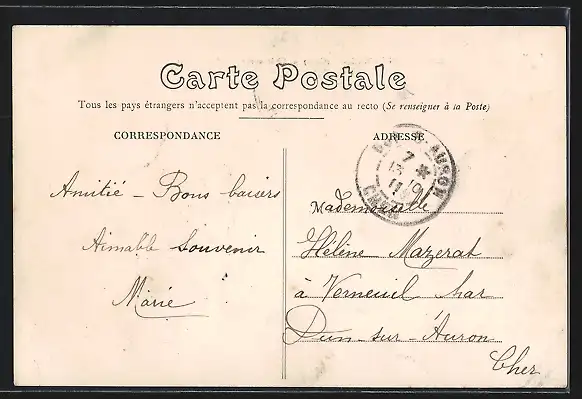 Carte Postale
Tous les pays étrangers n'acceptent pas la correspondance au recto (Se renseigner à la Poste)
CORRESPONDANCE
ADRESSE
Amitié - Bons baisers
Aimable Souvenir
Marie
Mademoiselle
Hélène Mazerat
à Verneuil par
Dun-sur-Auron
Cher
AURON
7 *
13
11
CHER